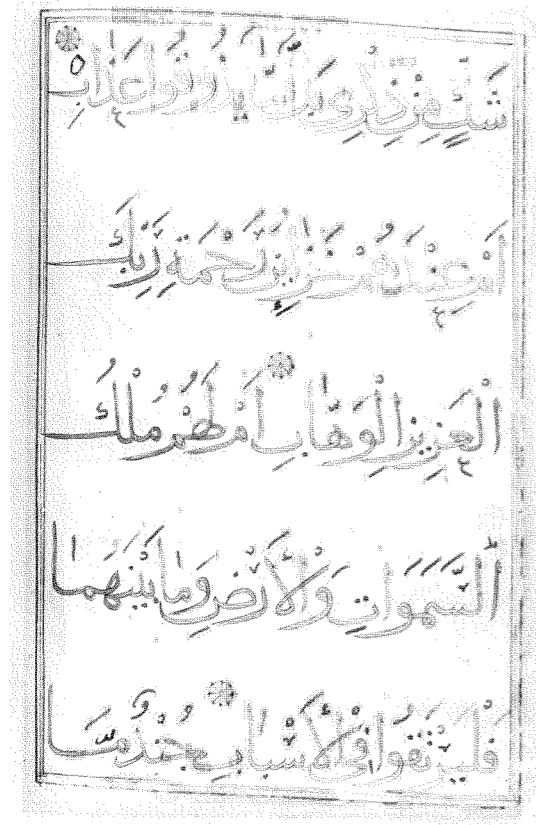 شَكٍّ مِنْ ذِكْرِى بَل لَمَّا يَذُوقُوا عَذَابِ
اَمْ عِنْدَهُمْ خَزَائِنُ رَحْمَةِ رَبِّكَ
الْعَزِيزِ الْوَهَّابِ اَمْ لَهُمْ مُلْكُ
السَّمَوَاتِ وَالْأَرْضِ وَمَا بَيْنَهُمَا
فَلْيَرْتَقُوا فِي الْأَسْبَابِ جُنْدٌ مَّا